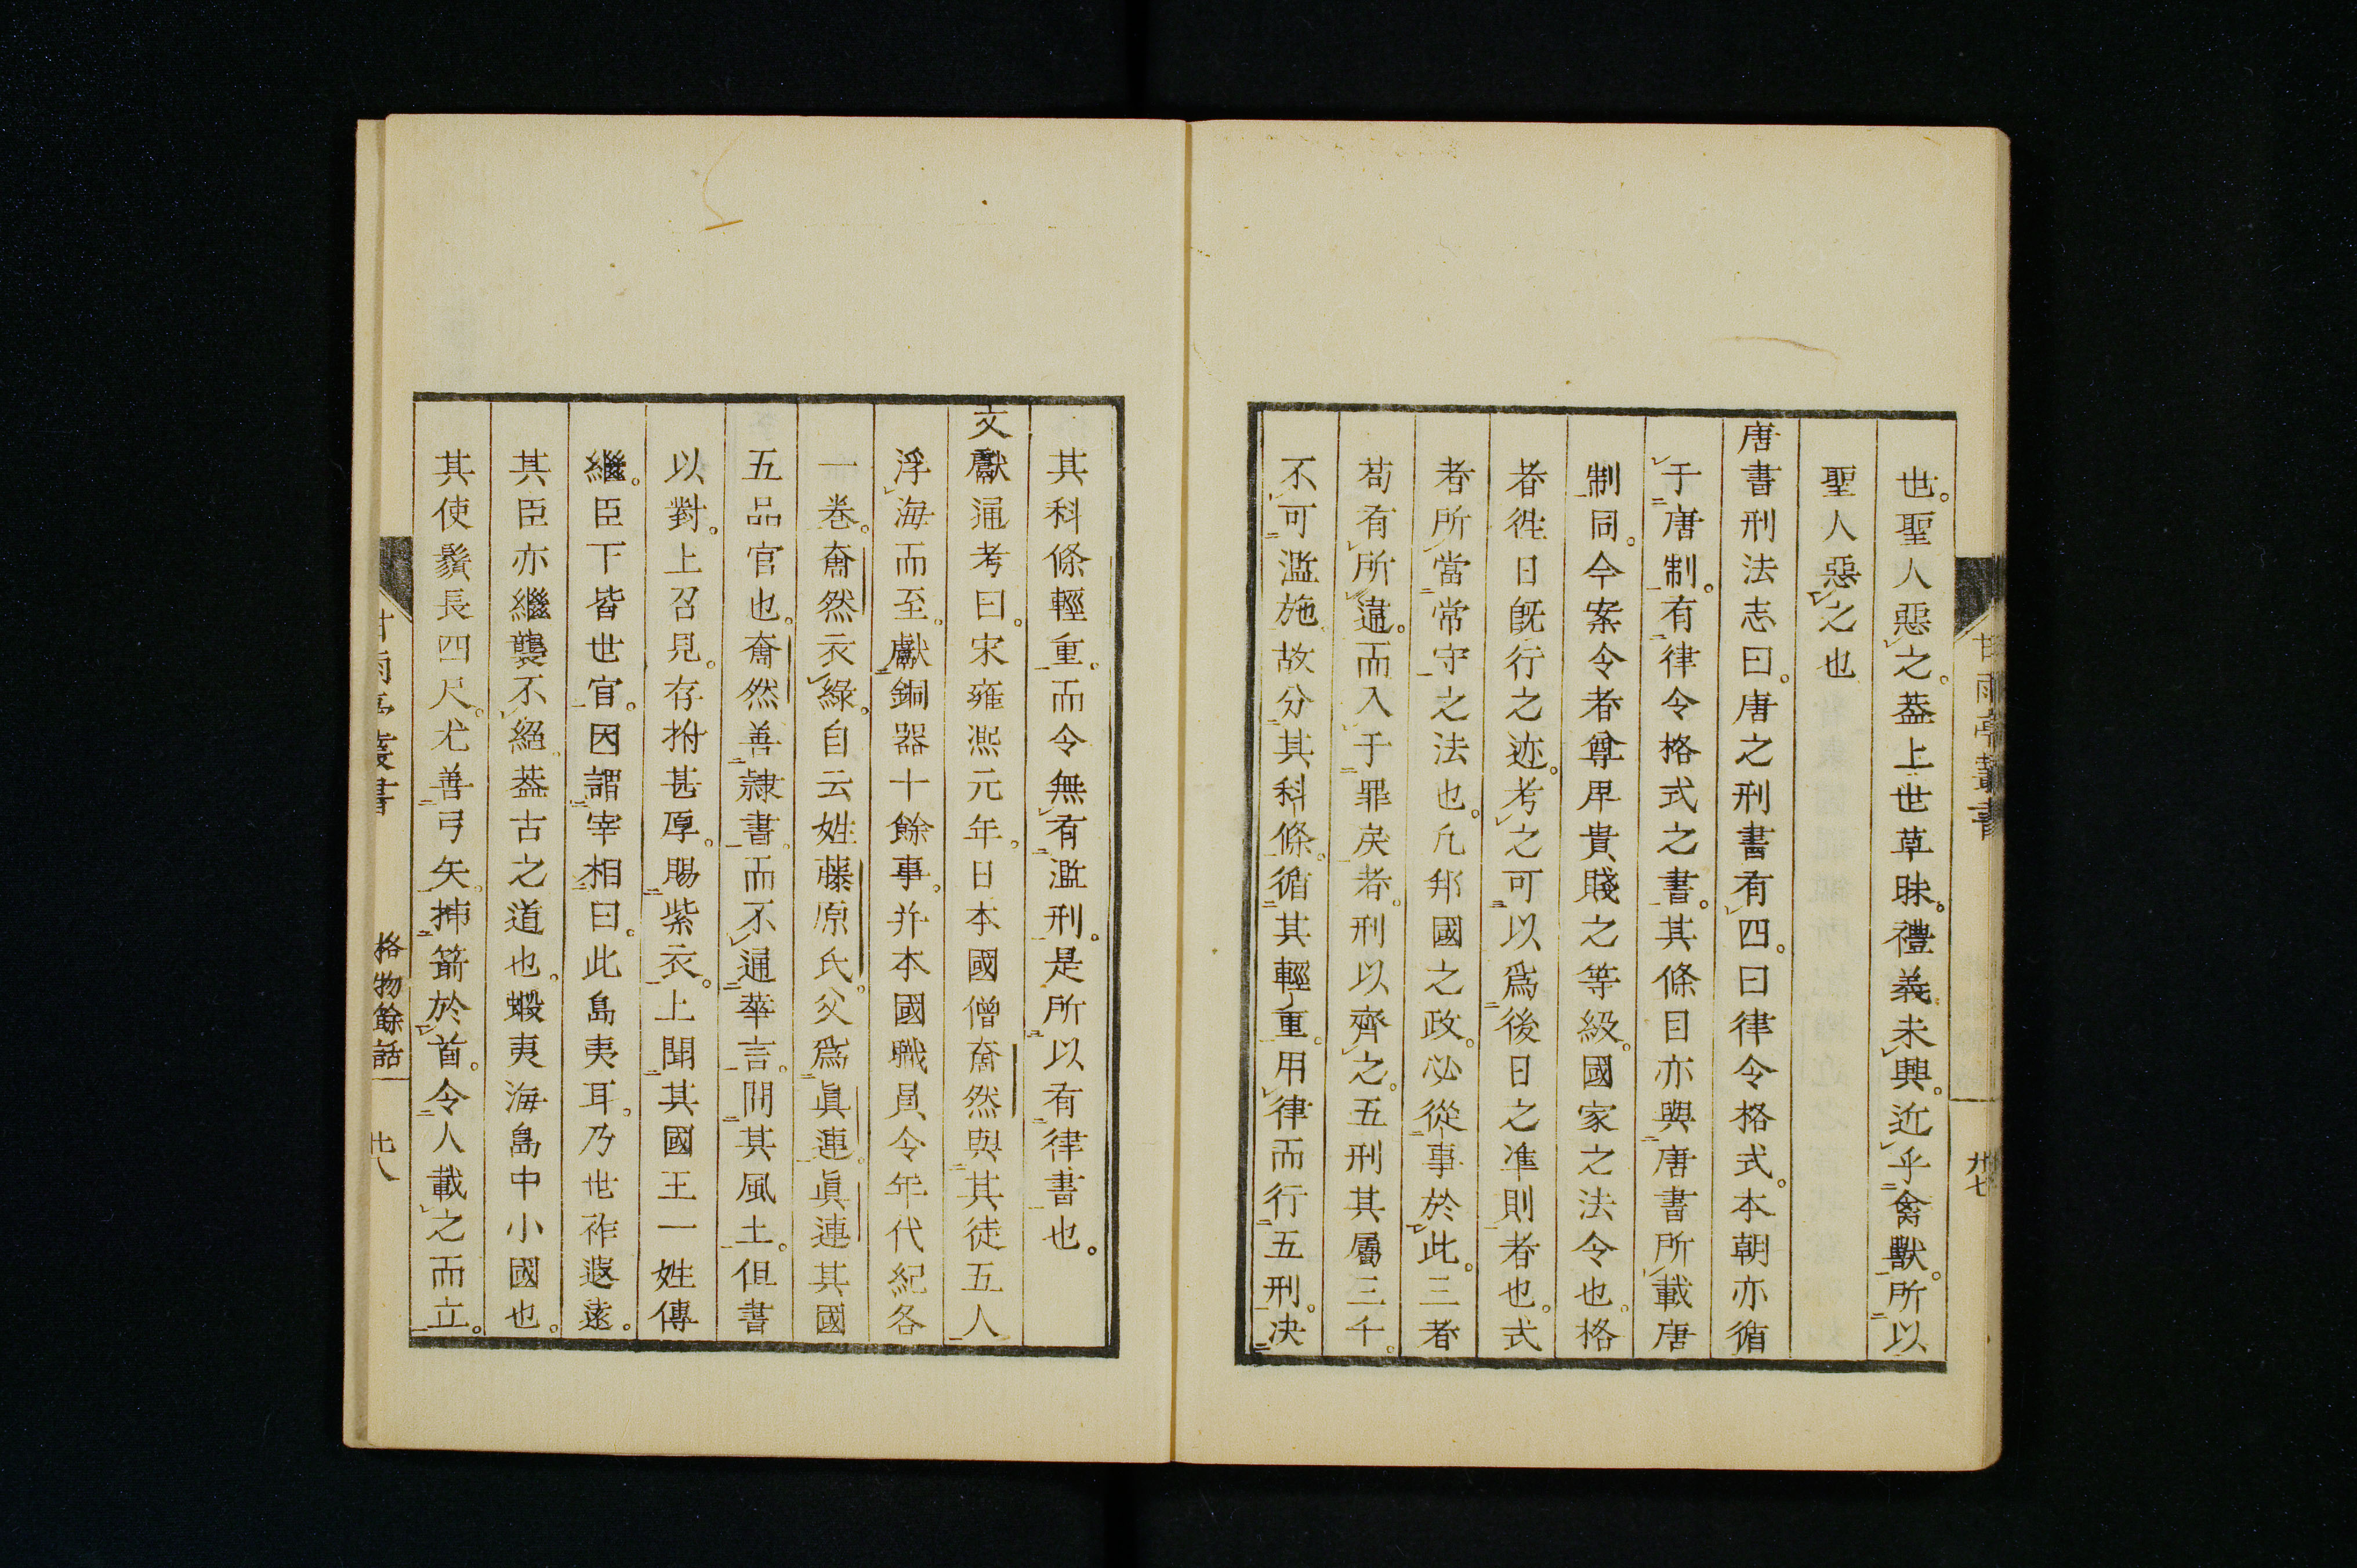 世。聖人惡之。蓋上世草昧。禮義未興。近乎禽獸。所以
聖人惡之也
唐書刑法志曰。唐之刑書有四。曰律令格式。本朝亦循
于唐制。有律令格式之書。其條目亦與唐書所載唐
制同。今案令者尊卑貴賤之等級。國家之法令也。格
者徃日既行之迹。考之可以爲後日之準則者也。式
者所當常守之法也。凡邦國之政。必從事於此。三者
苟有所違。而入于罪戾者。刑以齊之。五刑其屬三千。
不可濫施。故分其科條。循其輕重。用律而行五刑。决
甘雨亭叢書
廿七
其科條輕重。而令無有濫刑。是所以有律書也。
文獻通考曰。宋雍熙元年。日本國僧奝然與其徒五人
浮海而至。獻銅器十餘事。并本國職員令年代紀各
一卷。奝然衣綠。自云姓藤原氏。父爲眞連。眞連其國
五品官也。奝然善隷書。而不通華言。問其風土。但書
以對。上召見。存拊甚厚。賜紫衣。上聞其國王一姓傳
繼。臣下皆世官。因謂宰相曰。此島夷耳。乃世祚遐遠。
其臣亦繼襲不絕。蓋古之道也。蝦夷海島中小國也。
其使鬚長四尺。尤善弓矢。挿箭於首。令人載之而立。
甘雨亭叢書
格物餘話
廿八